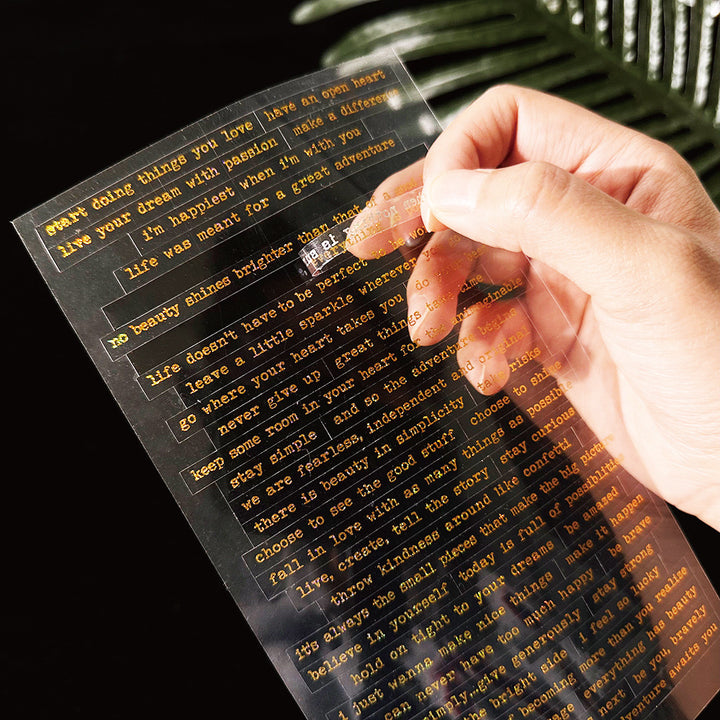 start doing things you love have an open heart
live your dream with passion make a difference
i'm happiest when i'm with you
life was meant for a great adventure
no beauty shines brighter than that of a
everything
life doesn't have to be perfect to be wo
leave a little sparkle wherever you
go where your heart takes you do
never give up great things take time
keep some room in your heart for the unimaginable
stay simple and so the adventure begins
we are fearless, independent and original
there is beauty in simplicity take risks
choose to see the good stuff choose to shine
fall in love with as many things as possible
live, create, tell the story stay curious
throw kindness around like confetti
it's always the small pieces that make the big picture
believe in yourself today is full of possibilities
hold on tight to your dreams be amazed
i just wanna make nice things make it happen
can never have too much happy be brave
simply...give generously stay strong
the bright side i feel so lucky
becoming more than you realize
ge everything has beauty
next be you, bravely
venture awaits you